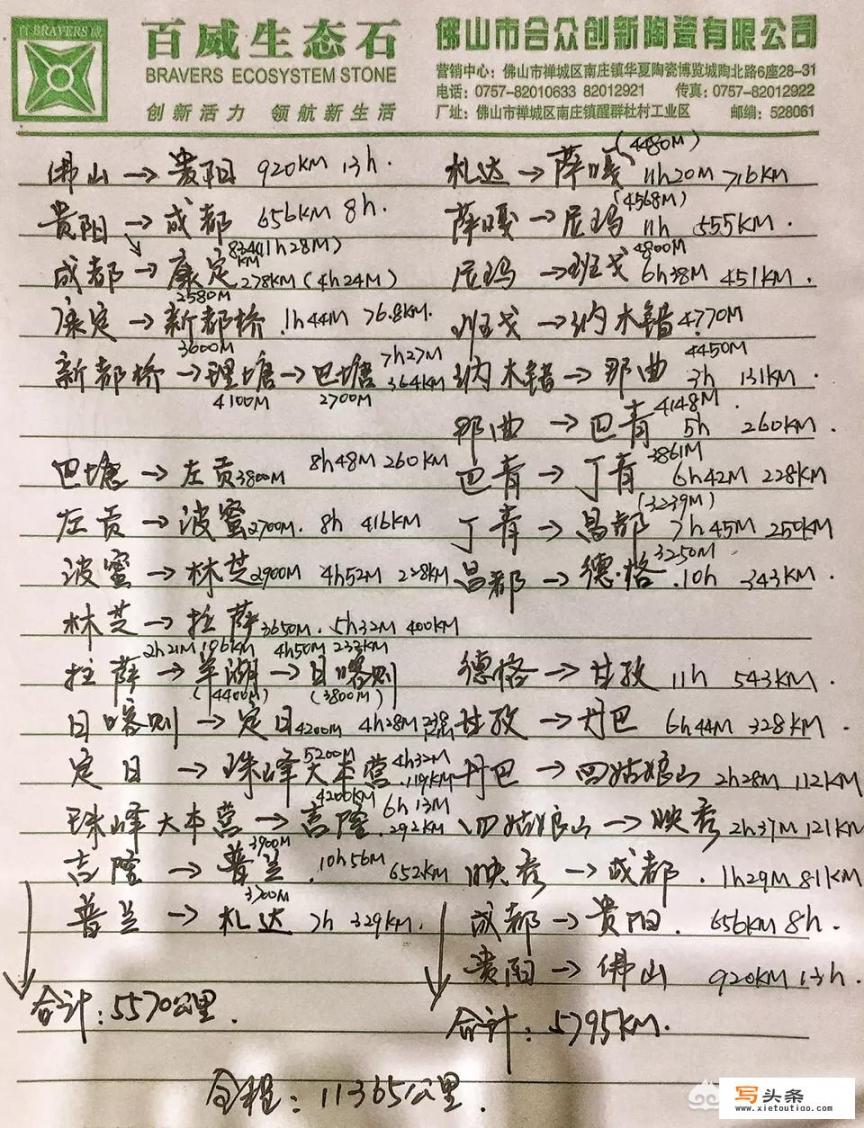 百BRAVERS威
百威生态石
BRAVERS ECOSYSTEM STONE
创新活力 领航新生活
佛山市合众创新陶瓷有限公司
营销中心：佛山市禅城区南庄镇华夏陶瓷博览城陶北路6座28-31
电话：0757-82010633 82012921 传真：0757-82012922
厂址：佛山市禅城区南庄镇醒群杜村工业区 邮编：528061
佛山→贵阳 920KM 13h.
贵阳→成都 656KM 8h.
成都→康定 278KM(4h24M)
2580M
康定→新都桥 1h44M 76.8KM.
3600M
新都桥→理塘→巴塘 7h27M 364KM
4100M 2700M
巴塘→左贡3800M 8h48M 260KM
左贡→波蜜2700M. 8h 416KM
波蜜→林芝2900M 4h52M 228KM
林芝→拉萨3650M. 5h32M 400KM
2h21M 196KM 4h50M 233KM
拉萨→羊湖→日喀则
(4400M) (3800M)
日喀则→定日4200M 4h28M 238KM
定日→珠峰大本营 5200M 4h32M 119KM
珠峰大本营→吉隆 4200M 6h13M 292KM
吉隆→普兰 3900M 10h56M 652KM
普兰→札达 3700M 7h 329KM.
合计：5570公里.
札达→萨嘎 (4480M) 11h20M 716KM
萨嘎→尼玛 (4568M) 11h 555KM.
尼玛→班戈 4800M 6h38M 451KM.
班戈→纳木错4770M
纳木错→那曲 4450M 3h 131KM.
那曲→巴青 4148M. 5h 260KM.
巴青→丁青 3861M 6h42M 228KM
丁青→昌都 (3239M) 7h45M 250KM
昌都→德格 3250M .10h 343KM.
德格→甘孜 11h 543KM.
甘孜→丹巴 6h44M 328KM.
丹巴→四姑娘山 2h28M 112KM
四姑娘山→映秀 2h37M 121KM
映秀→成都. 1h29M 81KM
成都→贵阳. 656KM 8h.
贵阳→佛山 920KM 13h.
合计：5795KM.
全程：11365公里.
写头条
www.xietoutiao.com